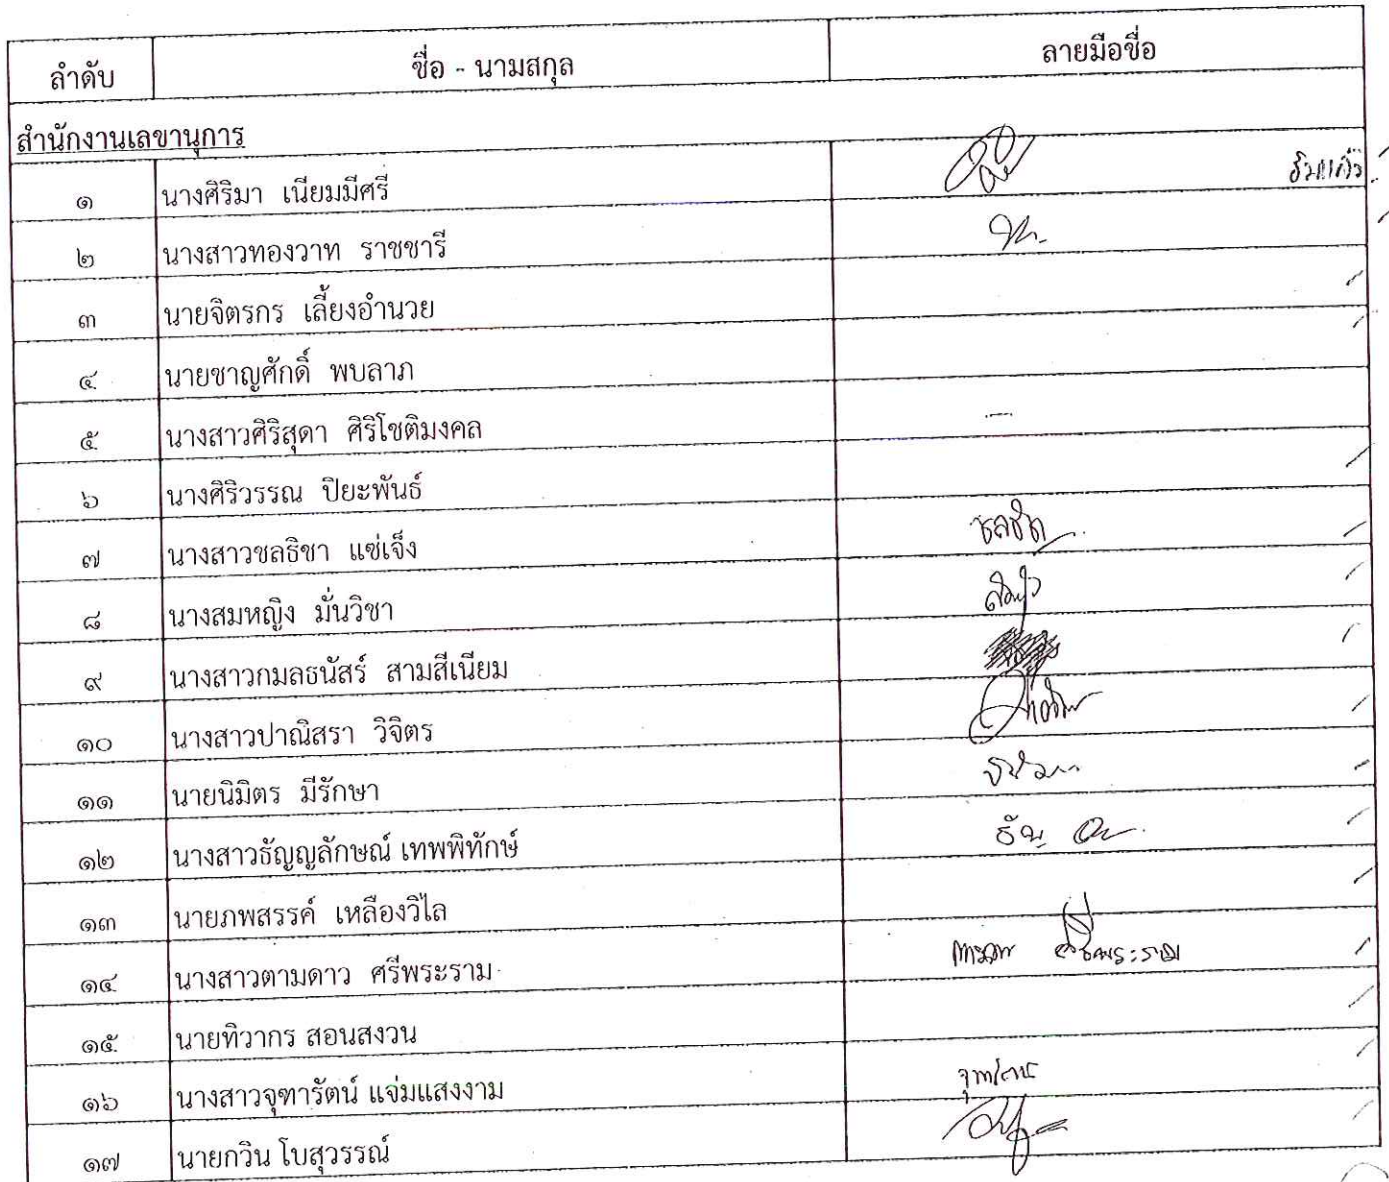 ลำดับ ชื่อ - นามสกุล ลายมือชื่อ
สำนักงานเลขานุการ
๑ นางศิริมา เนียมมีศรี
๒ นางสาวทองวาท ราชชารี
๓ นายจิตรกร เลี้ยงอำนวย
๔ นายชาญศักดิ์ พบลาภ
๕ นางสาวศิริสุดา ศิริโชติมงคล -
๖ นางศิริวรรณ ปิยะพันธ์
๗ นางสาวชลธิชา แซ่เจ็ง
๘ นางสมหญิง มั่นวิชา
๙ นางสาวกมลธนัสร์ สามสีเนียม
๑๐ นางสาวปาณิสรา วิจิตร
๑๑ นายนิมิตร มีรักษา
๑๒ นางสาวธัญญลักษณ์ เทพพิทักษ์
๑๓ นายภพสรรค์ เหลืองวิไล
๑๔ นางสาวตามดาว ศรีพระราม
๑๕ นายทิวากร สอนสงวน
๑๖ นางสาวจุฑารัตน์ แจ่มแสงงาม
๑๗ นายกวิน โบสุวรรณ์